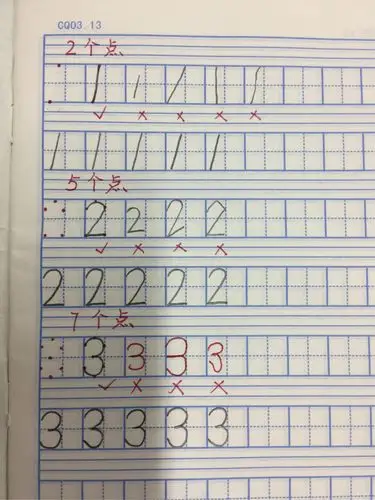 CQ03 13
2个点
1 1 1 1 1
✓ × × × ×
1 1 1 1 1
5个点
2 2 2 2
✓ × × ×
2 2 2 2 2
7个点
3 3 3 3
✓ × × ×
3 3 3 3 3